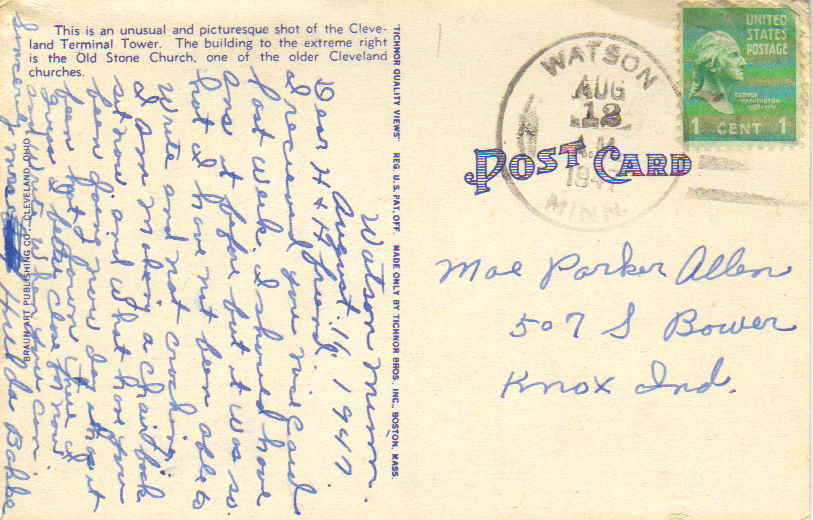 This is an unusual and picturesque shot of the Cleve-
land Terminal Tower. The building to the extreme right
is the Old Stone Church, one of the older Cleveland
churches.
TICHNOR QUALITY VIEWS REG. U. S. PAT. OFF. MADE ONLY BY TICHNOR BROS. INC., BOSTON, MASS.
BRAUN ART PUBLISHING CO., CLEVELAND, OHIO
Watson Minn.
August 11 1947.
Dear H + H friend
I recieved you nice card
last week. I should have
ans it before but it was so
hot I have not been able to
write and not crocheting
I am making a chair back
set now and what have you
been doing now days hasn't
been hot down there I
guess I better close for now
and write if you can.
Sincerely yours
Hulda Bakke
WATSON
AUG
12
A.M.
1947
MINN.
UNITED
STATES
POSTAGE
GEORGE
WASHINGTON
1 CENT 1
POST CARD
Mae Parker Allen
507 S Bower
Knox Ind.